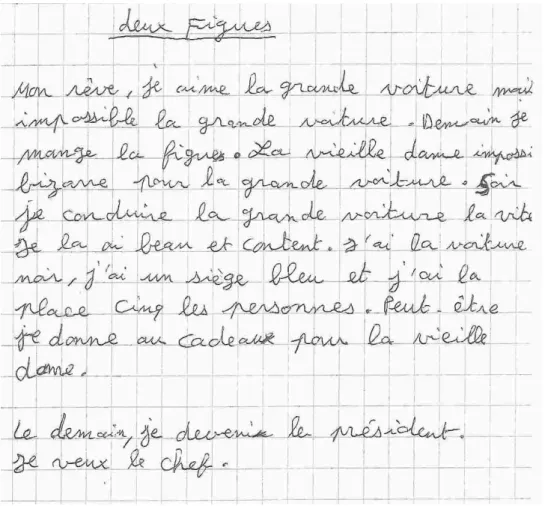 deux Figues
Mon rêve, je aime la grande voiture mais
impossible la grande voiture. Demain je
mange la figues. La vieille dame impossi
bizarre pour la grande voiture. Soir
je conduire la grande voiture la vite
Je la ai beau et content. J'ai la voiture
noir, j'ai un siège bleu et j'ai la
place cinq les personnes. Peut-être
je donne au cadeaux pour la vieille
dame.
Le demain, je devenir le président.
Je veux le chef.